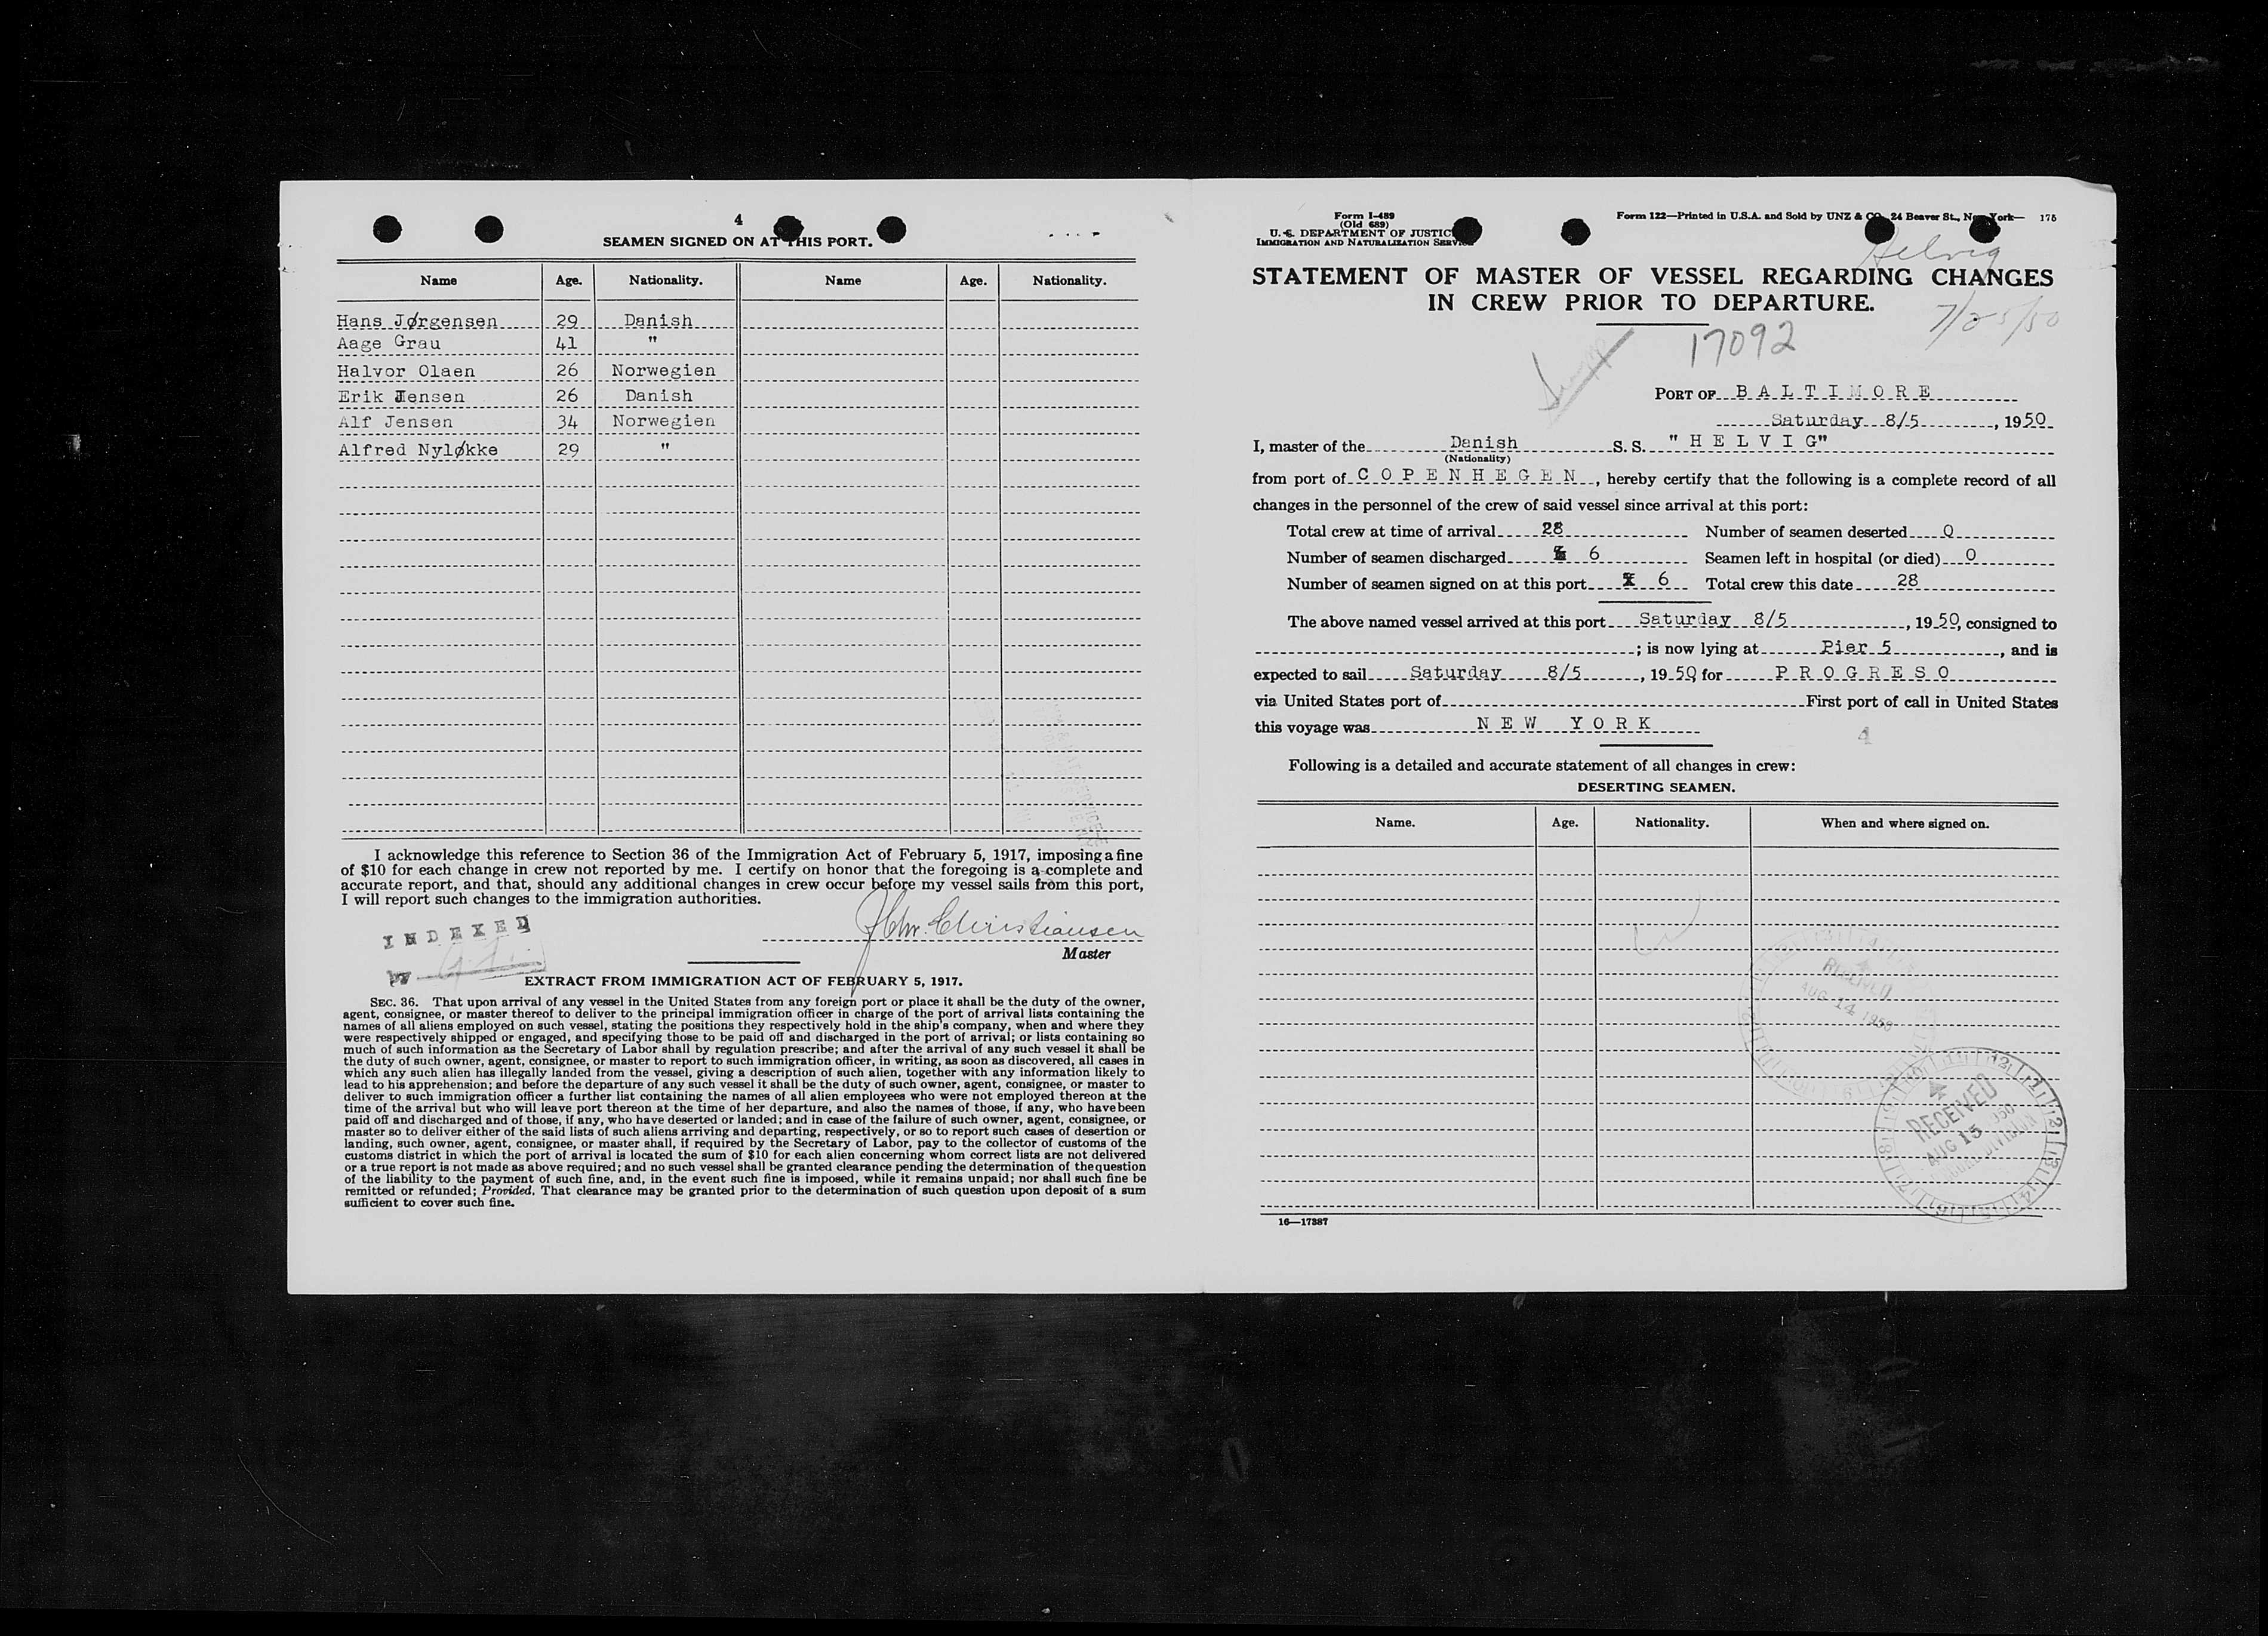 4
SEAMEN SIGNED ON AT THIS PORT.
Name Age. Nationality. Name Age. Nationality.
Hans Jørgensen 29 Danish
Aage Grau 41 "
Halvor Olaen 26 Norwegien
Erik Jensen 26 Danish
Alf Jensen 34 Norwegien
Alfred Nyløkke 29 "
I acknowledge this reference to Section 36 of the Immigration Act of February 5, 1917, imposing a fine
of $10 for each change in crew not reported by me. I certify on honor that the foregoing is a complete and
accurate report, and that, should any additional changes in crew occur before my vessel sails from this port,
I will report such changes to the immigration authorities.
INDEXED
by
J Chr. Christiansen
Master
EXTRACT FROM IMMIGRATION ACT OF FEBRUARY 5, 1917.
SEC. 36. That upon arrival of any vessel in the United States from any foreign port or place it shall be the duty of the owner,
agent, consignee, or master thereof to deliver to the principal immigration officer in charge of the port of arrival lists containing the
names of all aliens employed on such vessel, stating the positions they respectively hold in the ship's company, when and where they
were respectively shipped or engaged, and specifying those to be paid off and discharged in the port of arrival; or lists containing so
much of such information as the Secretary of Labor shall by regulation prescribe; and after the arrival of any such vessel it shall be
the duty of such owner, agent, consignee, or master to report to such immigration officer, in writing, as soon as discovered, all cases in
which any such alien has illegally landed from the vessel, giving a description of such alien, together with any information likely to
lead to his apprehension; and before the departure of any such vessel it shall be the duty of such owner, agent, consignee, or master to
deliver to such immigration officer a further list containing the names of all alien employees who were not employed thereon at the
time of the arrival but who will leave port thereon at the time of her departure, and also the names of those, if any, who have been
paid off and discharged and of those, if any, who have deserted or landed; and in case of the failure of such owner, agent, consignee, or
master so to deliver either of the said lists of such aliens arriving and departing, respectively, or so to report such cases of desertion or
landing, such owner, agent, consignee, or master shall, if required by the Secretary of Labor, pay to the collector of customs of the
customs district in which the port of arrival is located the sum of $10 for each alien concerning whom correct lists are not delivered
or a true report is not made as above required; and no such vessel shall be granted clearance pending the determination of the question
of the liability to the payment of such fine, and, in the event such fine is imposed, while it remains unpaid; nor shall such fine be
remitted or refunded; Provided, That clearance may be granted prior to the determination of such question upon deposit of a sum
sufficient to cover such fine.
Form I-489
(Old 689)
U. S. DEPARTMENT OF JUSTICE
IMMIGRATION AND NATURALIZATION SERVICE
Form 122—Printed in U.S.A. and Sold by UNZ & CO., 24 Beaver St., New York— 175
Helvig
STATEMENT OF MASTER OF VESSEL REGARDING CHANGES
IN CREW PRIOR TO DEPARTURE.
7/25/50
17092
PORT OF BALTIMORE
Saturday 8/5, 1950
I, master of the Danish S. S. "HELVIG"
(Nationality)
from port of COPENHEGEN, hereby certify that the following is a complete record of all
changes in the personnel of the crew of said vessel since arrival at this port:
Total crew at time of arrival 28 Number of seamen deserted 0
Number of seamen discharged 6 Seamen left in hospital (or died) 0
Number of seamen signed on at this port 6 Total crew this date 28
The above named vessel arrived at this port Saturday 8/5, 1950, consigned to
; is now lying at Pier 5, and is
expected to sail Saturday 8/5, 1950 for PROGRESO
via United States port of First port of call in United States
this voyage was NEW YORK
4
Following is a detailed and accurate statement of all changes in crew:
DESERTING SEAMEN.
Name. Age. Nationality. When and where signed on.
RECEIVED
AUG 14 1950
RECEIVED
AUG 15 1950
16—17387